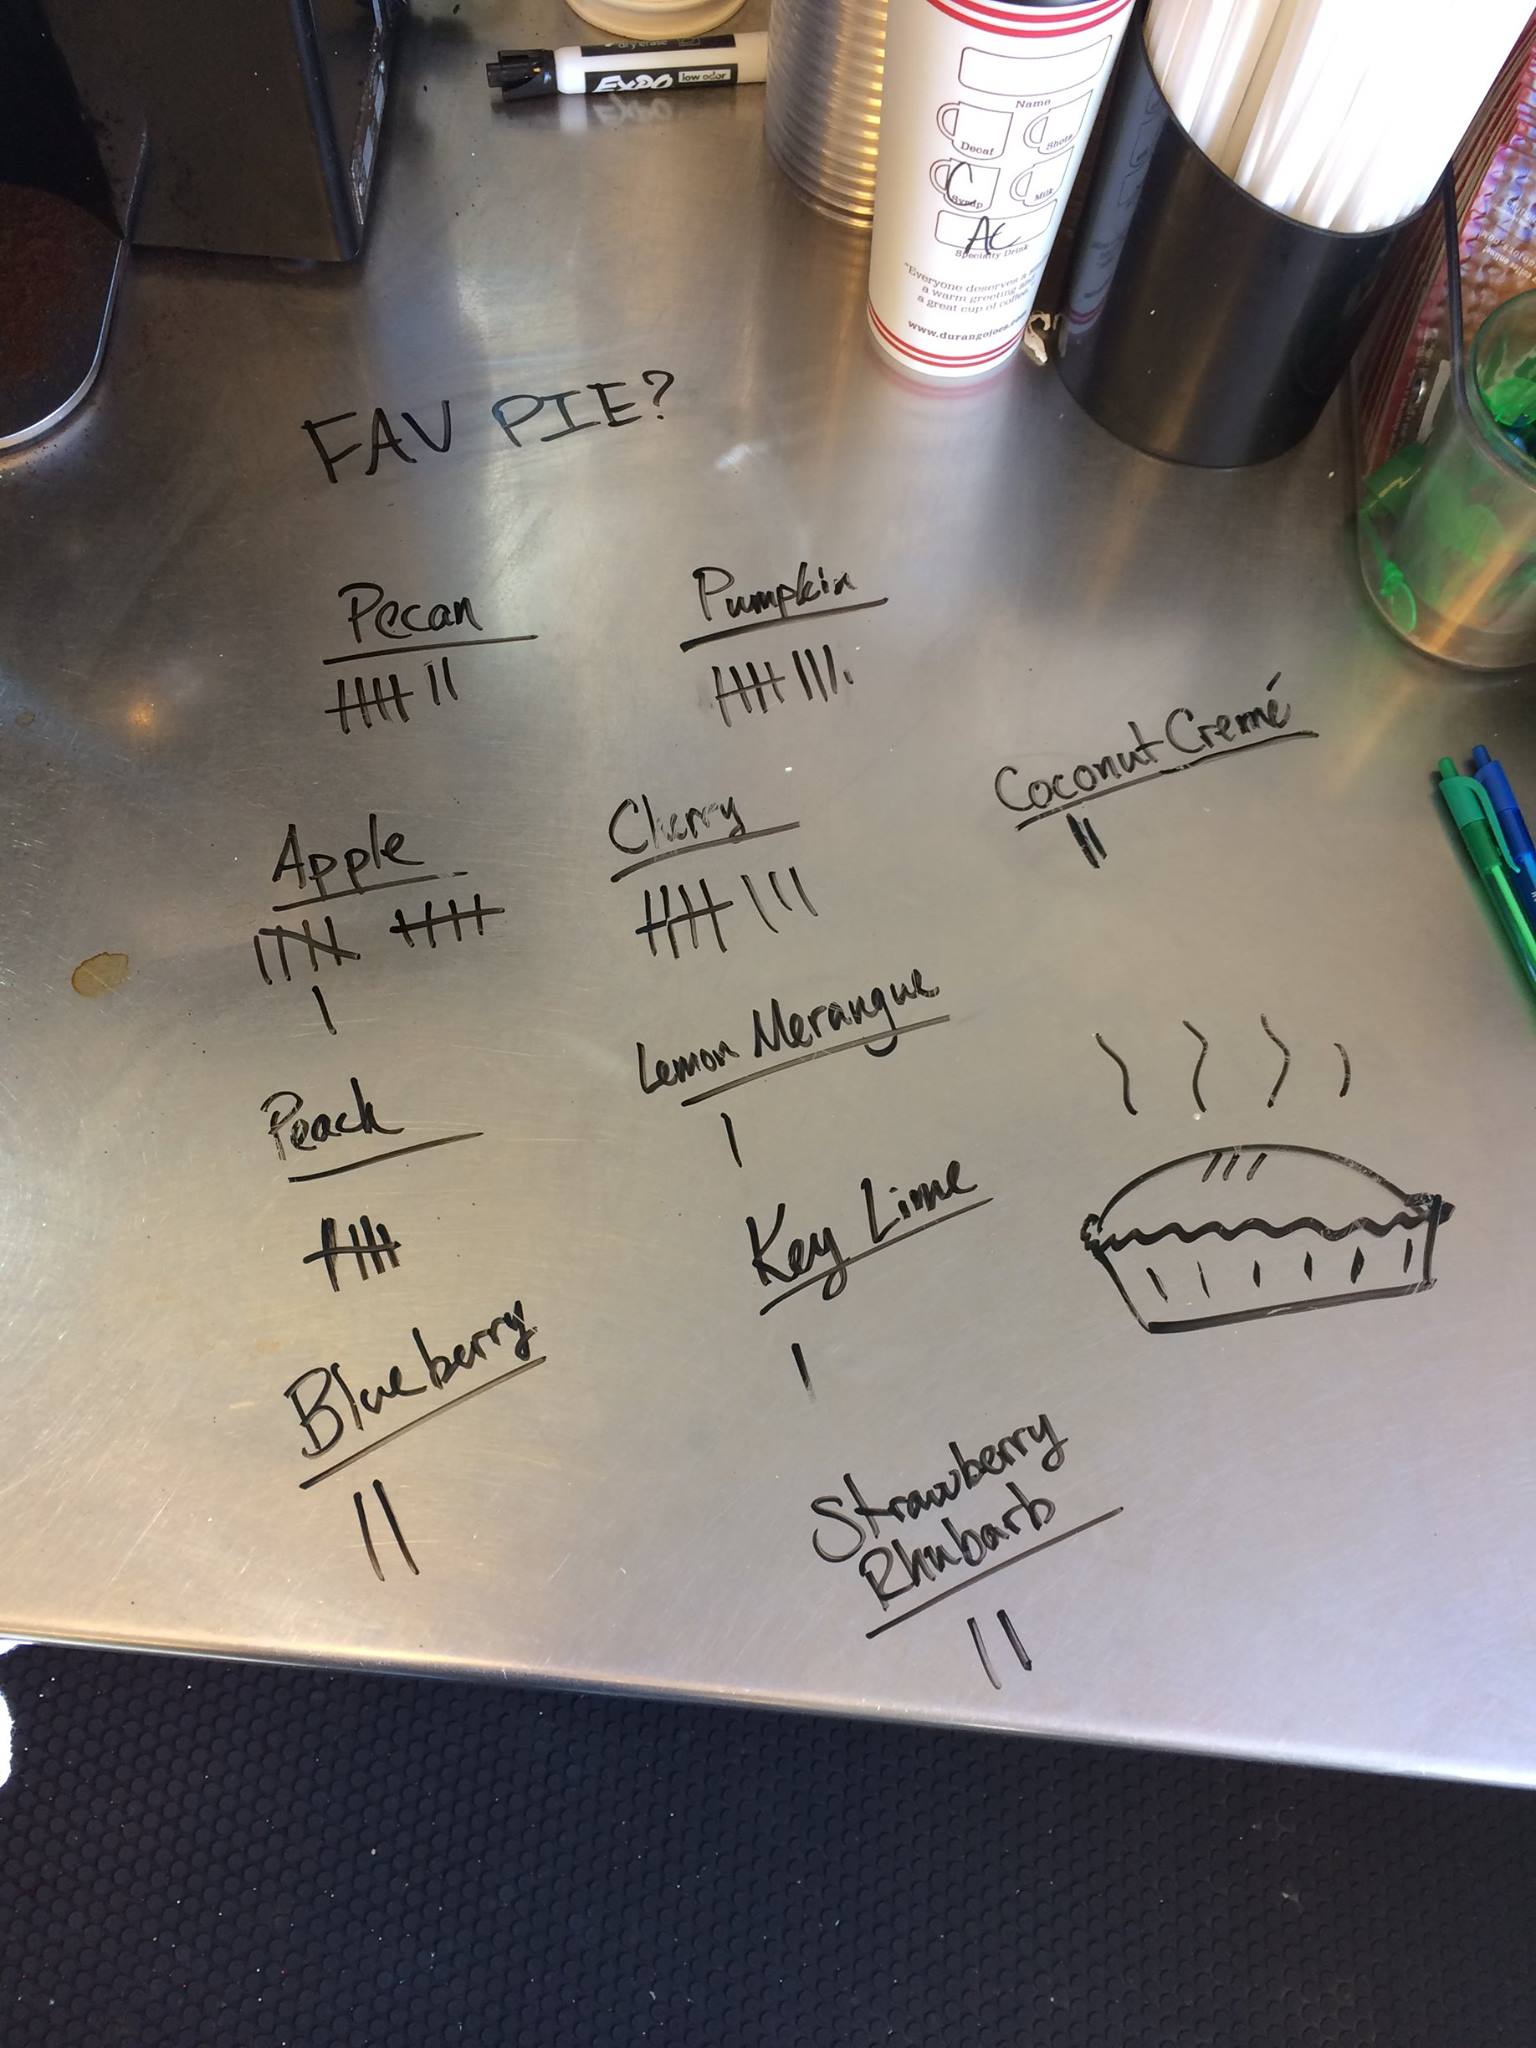 dry erase
EXPO low odor
Name
Decaf
Shots
C
Syrup
Milk
AC
Specialty Drink
"Everyone deserves a
a warm greeting and
a great cup of coffee."
www.durangojoes.com
FAV PIE?
Pecan
Pumpkin
Coconut Cremé
Apple
Cherry
Lemon Merangue
Peach
Key Lime
Blueberry
Strawberry
Rhubarb